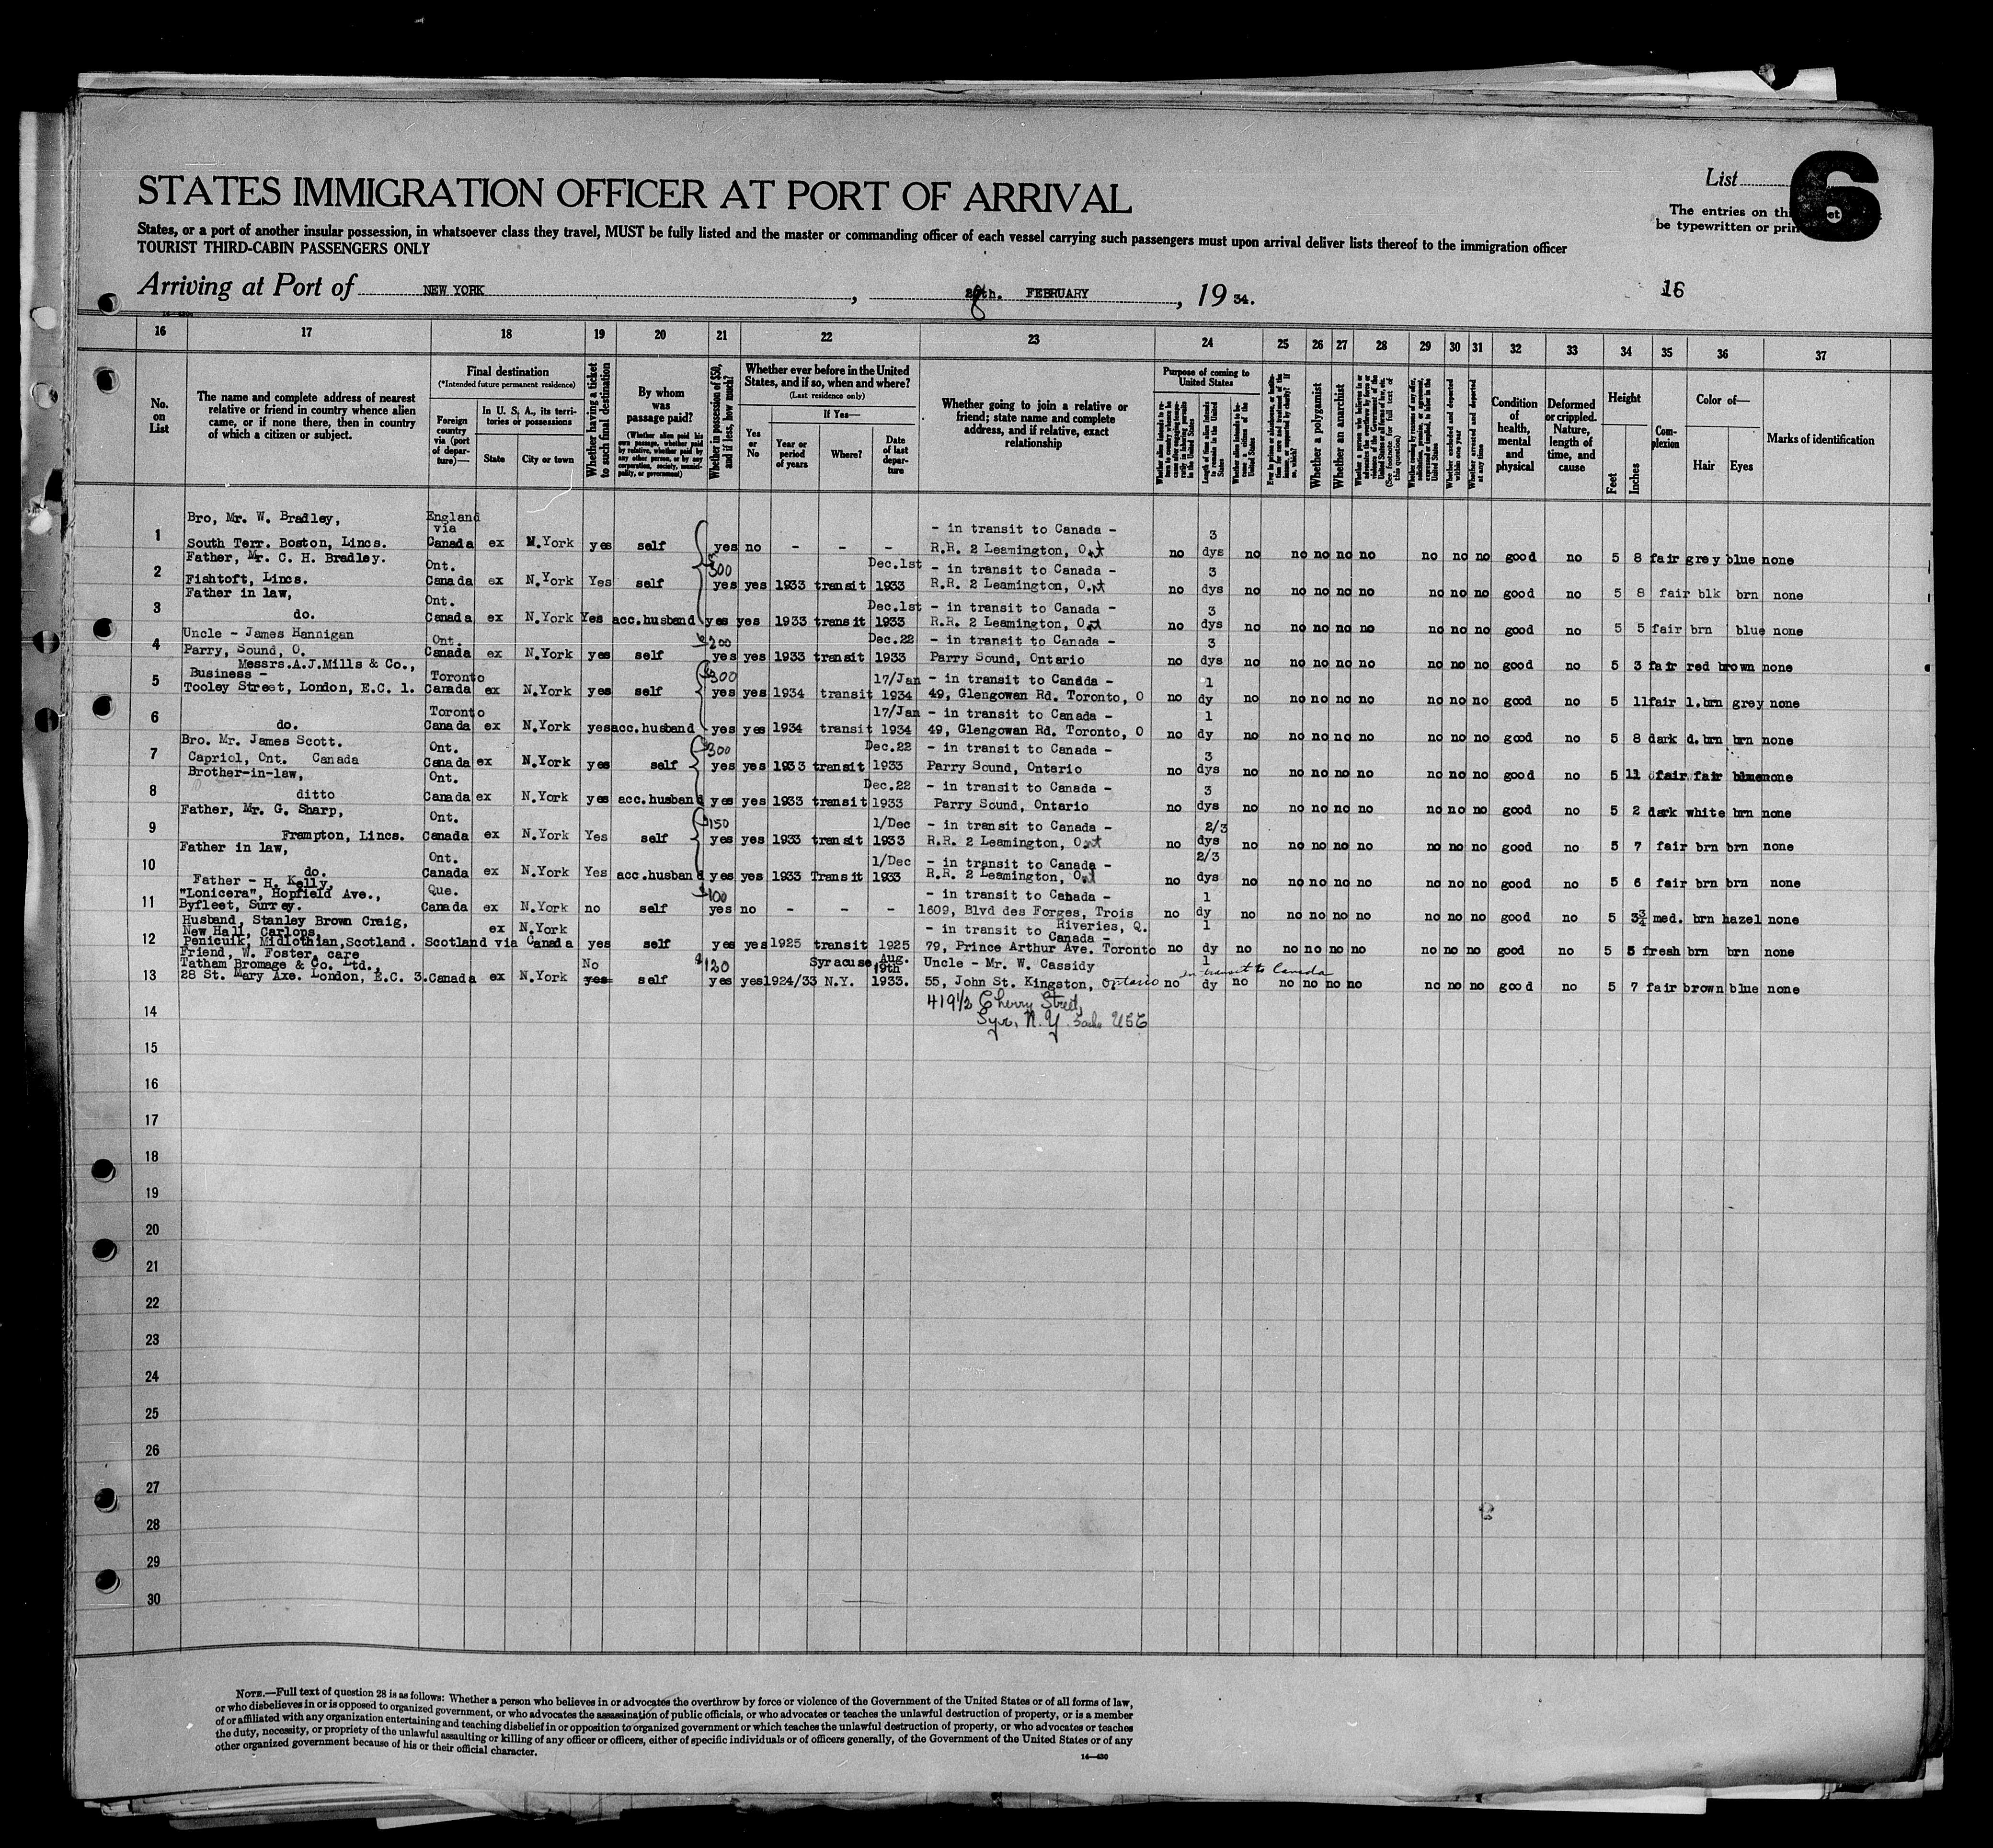 STATES IMMIGRATION OFFICER AT PORT OF ARRIVAL
List
6
The entries on
be typewritten or
States, or a port of another insular possession, in whatsoever class they travel, MUST be fully listed and the master or commanding officer of each vessel carrying such passengers must upon arrival deliver lists thereof to the immigration officer
TOURIST THIRD-CABIN PASSENGERS ONLY
Arriving at Port of NEW YORK , FEBRUARY , 19 34.
16
16 17 18 19 20 21 22 23 24 25 26 27 28 29 30 31 32 33 34 35 36 37
No. on List
The name and complete address of nearest relative or friend in country whence alien came, or if none there, then in country of which a citizen or subject.
Final destination
(*Intended future permanent residence)
Foreign country via (port of departure)—
In U. S. A., its territories or possessions
State
City or town
Whether having a ticket to such final destination
By whom was passage paid?
(Whether alien paid his own passage, whether paid by relative, whether paid by any other person, or by any corporation, society, municipality, or government)
Whether in possession of $50, and if less, how much?
Whether ever before in the United States, and if so, when and where?
(Last residence only)
Yes or No
If Yes—
Year or period of years
Where?
Date of last departure
Whether going to join a relative or friend; state name and complete address, and if relative, exact relationship
Purpose of coming to United States
Whether a polygamist
Whether an anarchist
Whether excluded and deported within one year
Whether arrested and deported at any time
Condition of health, mental and physical
Deformed or crippled. Nature, length of time, and cause
Height
Feet
Inches
Complexion
Color of—
Hair
Eyes
Marks of identification
1 Bro, Mr. W. Bradley, South Terr. Boston, Lincs. England via Canada ex N.York yes self yes no - - - - in transit to Canada - R.R. 2 Leamington, Ont no 3 dys no no no no no no no no good no 5 8 fair grey blue none
2 Father, Mr. C. H. Bradley. Fishtoft, Lincs. Ont. Canada ex N.York Yes self 300 yes yes 1933 transit Dec.1st 1933 - in transit to Canada - R.R. 2 Leamington, Ont no 3 dys no no no no no no no no good no 5 8 fair blk brn none
3 Father in law, do. Ont. Canada ex N.York Yes acc.husband yes yes 1933 transit Dec.1st 1933 - in transit to Canada - R.R. 2 Leamington, Ont no 3 dys no no no no no no no no good no 5 5 fair brn blue none
4 Uncle - James Hannigan Parry, Sound, O. Ont. Canada ex N.York yes self $200 yes yes 1933 transit Dec.22 1933 - in transit to Canada - Parry Sound, Ontario no 3 dys no no no no no no no no good no 5 3 fair red brown none
5 Messrs.A.J.Mills & Co., Business - Tooley Street, London, E.C. 1. Toronto Canada ex N.York yes self $300 yes yes 1934 transit 17/Jan 1934 - in transit to Canada - 49, Glengowan Rd. Toronto, O no 1 dy no no no no no no no no good no 5 11 fair l.brn grey none
6 do. Toronto Canada ex N.York yes acc.husband yes yes 1934 transit 17/Jan 1934 - in transit to Canada - 49, Glengowan Rd. Toronto, O no 1 dy no no no no no no no no good no 5 8 dark d.brn brn none
7 Bro. Mr. James Scott. Capriol, Ont. Canada Ont. Canada ex N.York yes self $300 yes yes 1933 transit Dec.22 1933 - in transit to Canada - Parry Sound, Ontario no 3 dys no no no no no no no no good no 5 11 fair fair blue none
8 Brother-in-law, ditto Ont. Canada ex N.York yes acc.husband yes yes 1933 transit Dec.22 1933 - in transit to Canada - Parry Sound, Ontario no 3 dys no no no no no no no no good no 5 2 dark white brn none
9 Father, Mr. G. Sharp, Frampton, Lincs. Ont. Canada ex N.York Yes self $150 yes yes 1933 transit 1/Dec 1933 - in transit to Canada - R.R. 2 Leamington, Ont no 2/3 dys no no no no no no no no good no 5 7 fair brn brn none
10 Father in law, do. Ont. Canada ex N.York Yes acc.husband yes yes 1933 Transit 1/Dec 1933 - in transit to Canada - R.R. 2 Leamington, Ont no 2/3 dys no no no no no no no no good no 5 6 fair brn brn none
11 Father - H. Kelly, "Lonicera", Hopfield Ave., Byfleet, Surrey. Que. Canada ex N.York no self $100 yes no - - - - in transit to Canada - 1609, Blvd des Forges, Trois Riveries, Q. no 1 dy no no no no no no no no good no 5 3¾ med. brn hazel none
12 Husband, Stanley Brown Craig, New Hall, Carlops, Penicuik, Midlothian, Scotland. Scotland via Canada ex N.York yes self yes yes 1925 transit 1925 - in transit to Canada - 79, Prince Arthur Ave. Toronto no 1 dy no no no no no no no no good no 5 5 fresh brn brn none
13 Friend, W. Foster, care Tatham Bromage & Co. Ltd., 28 St. Mary Axe. London, E.C. 3. Canada ex N.York No yes self $120 yes yes 1924/33 Syracuse N.Y. Aug. 19th 1933. Uncle - Mr. W. Cassidy 55, John St. Kingston, Ontario in transit to Canada no 1 dy no no no no no no no no good no 5 7 fair brown blue none
419½ Cherry Street,
Syr. N.Y. USC
14
15
16
17
18
19
20
21
22
23
24
25
26
27
28
29
30
NOTE.—Full text of question 28 is as follows: Whether a person who believes in or advocates the overthrow by force or violence of the Government of the United States or of all forms of law,
or who disbelieves in or is opposed to organized government, or who advocates the assassination of public officials, or who advocates or teaches the unlawful destruction of property, or is a member
of or affiliated with any organization entertaining and teaching disbelief in or opposition to organized government or which teaches the unlawful destruction of property, or who advocates or teaches
the duty, necessity, or propriety of the unlawful assaulting or killing of any officer or officers, either of specific individuals or of officers generally, of the Government of the United States or of any
other organized government because of his or their official character.
14—430